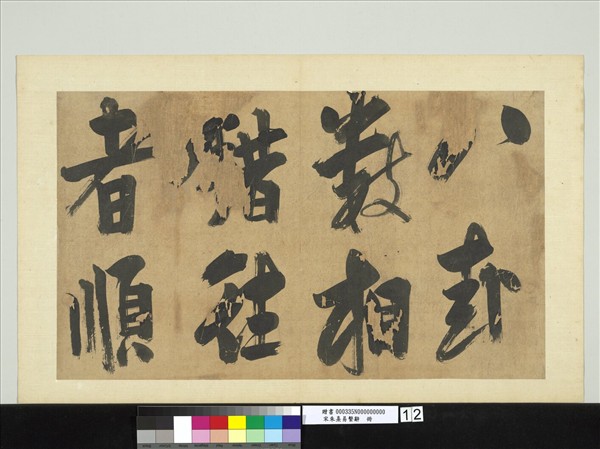 八卦
數相
錯往
者順
贈書 000335N000000000
宋朱熹易繫辭 冊
12